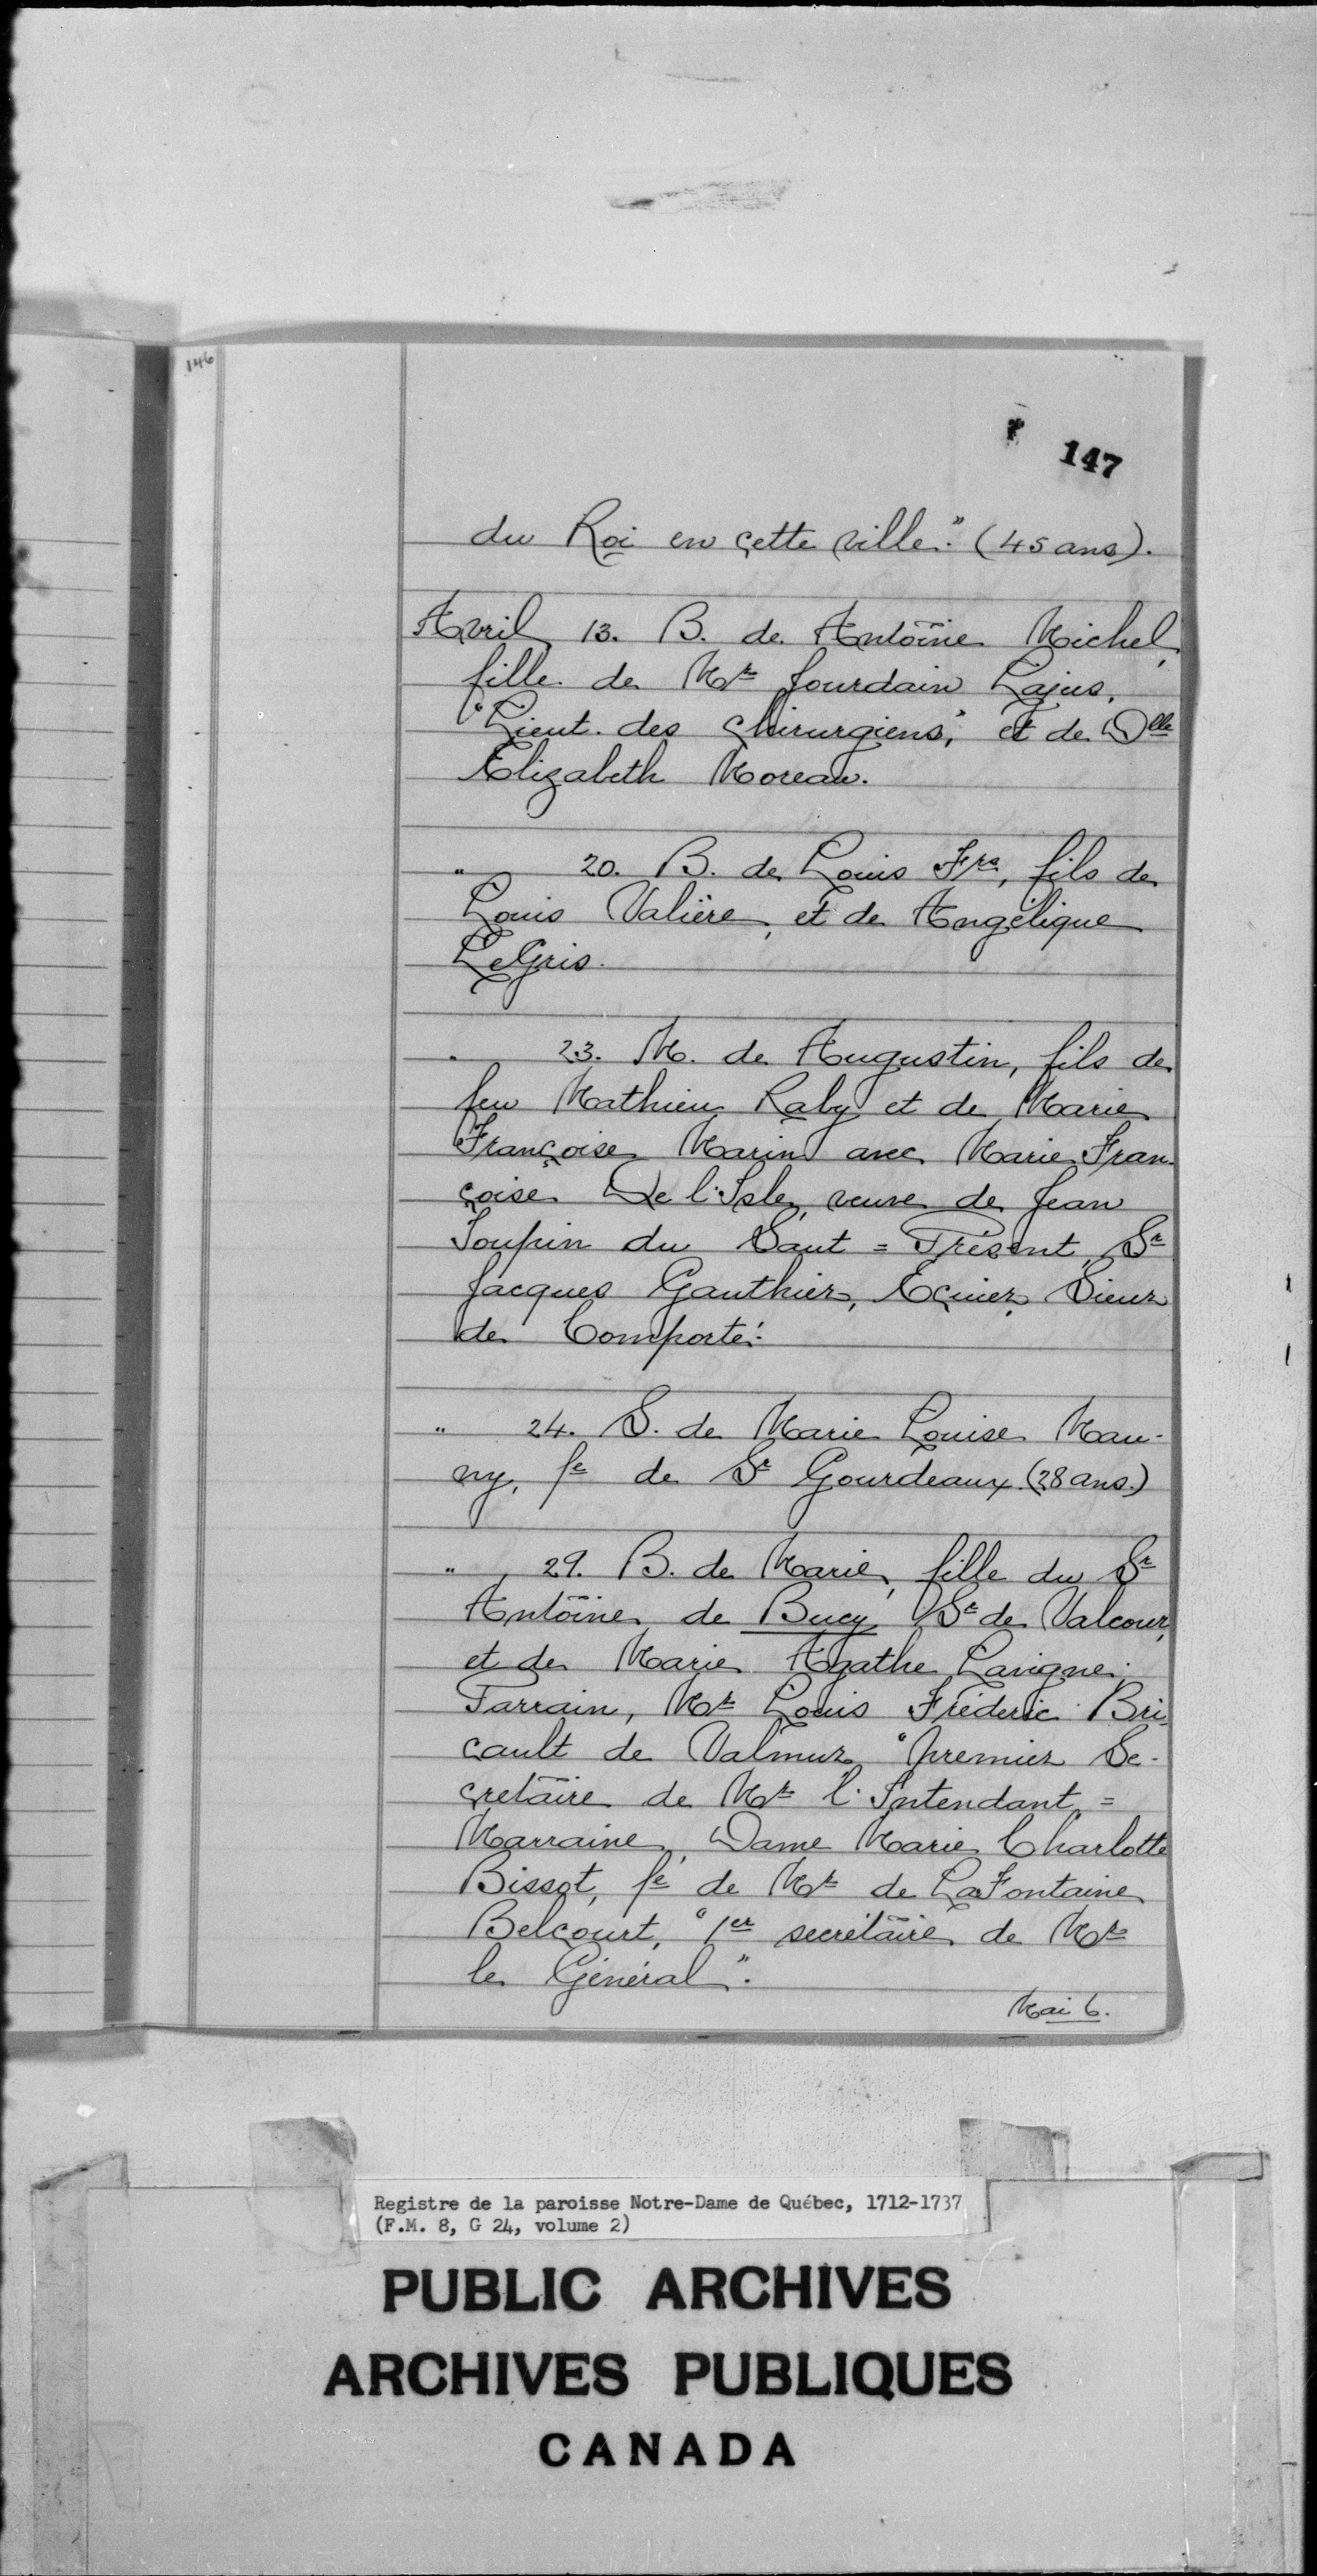 146
147
du Roi en cette ville." (45 ans).
Avril 13. B. de Antoine Michel,
fille de Mr Jourdain Lajus,
"Lieut. des chirurgiens," et de Dlle
Elizabeth Moreau.
" 20. B. de Louis Frs, fils de
Louis Valière, et de Angélique
LeGris.
" 23. M. de Augustin, fils de
feu Mathieu Raby et de Marie
Françoise Marin avec Marie Fran-
çoise De l'Isle, veuve de Jean
Soupin du Saut = Présent, Sr
Jacques Gauthier, Ecuier, Sieur
de Comporté.
" 24. S. de Marie Louise Mau-
ny, fe de Sr Gourdeaux. (28 ans.)
" 29. B. de Marie, fille du Sr
Antoine de Bucy, Sr de Valcour,
et de Marie Agathe Lavigne.
Parrain, Mr Louis Fréderic Bri-
cault de Valmur "premier Se-
cretaire de Mr l'Intendant =
Marraine, Dame Marie Charlotte
Bissot, fe de Mr de LaFontaine
Belcourt, "1er secrétaire de Mr
le Général".
Mai 6.
Registre de la paroisse Notre-Dame de Québec, 1712-1737
(F.M. 8, G 24, volume 2)
PUBLIC ARCHIVES
ARCHIVES PUBLIQUES
CANADA